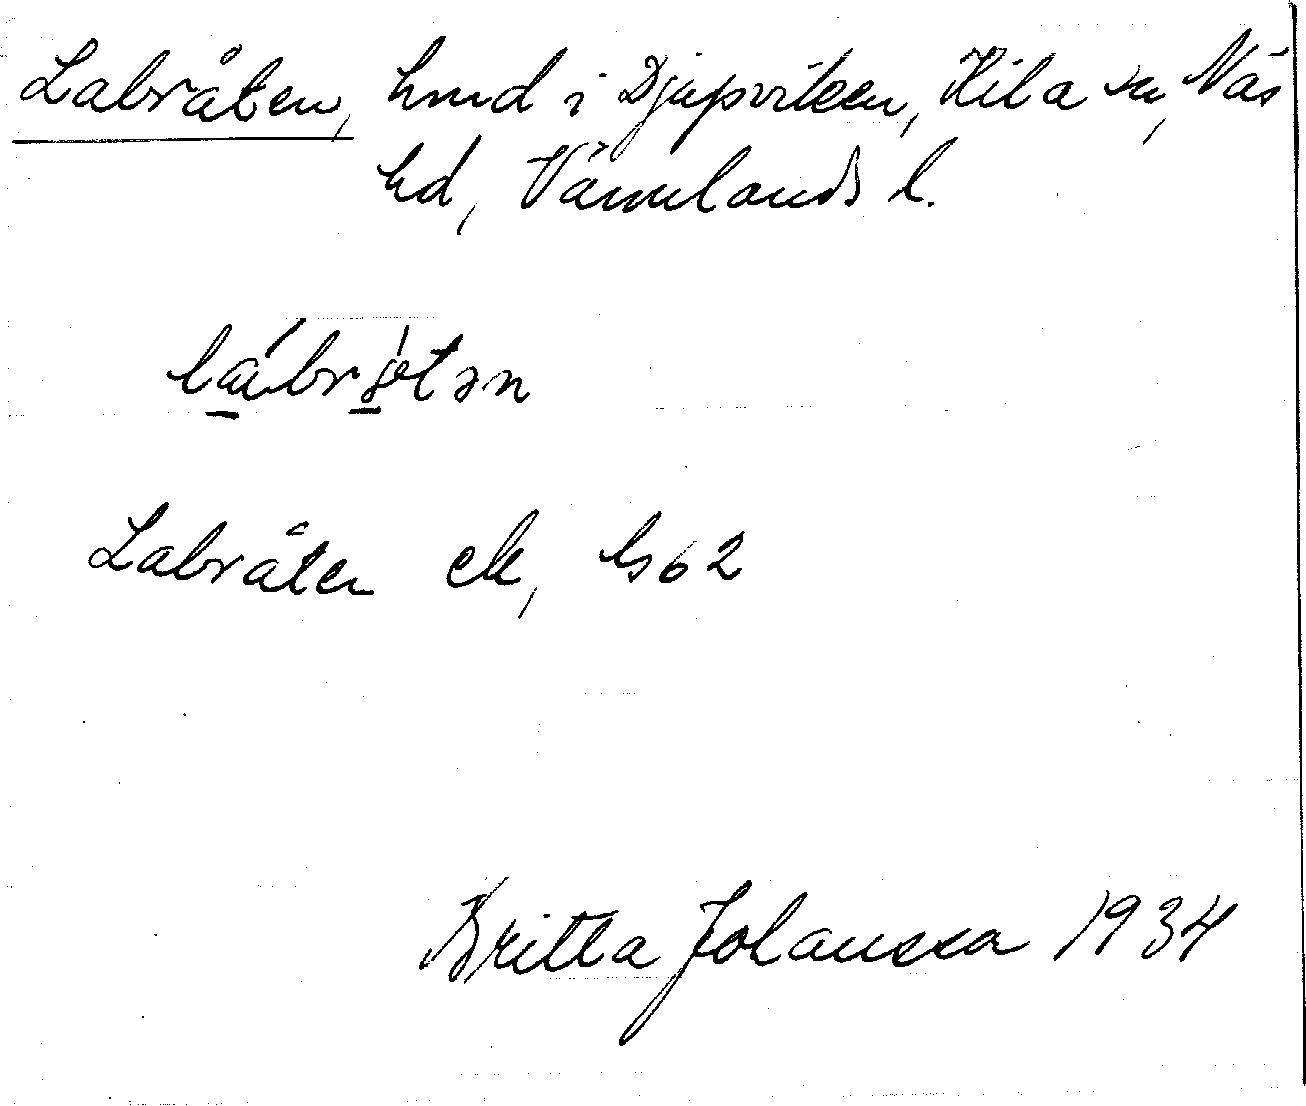 Labråten, hmd i Djupviken, Kila sn, Näs
hd, Värmlands l.
lábrǿtən
Labråten ek, ls 62
Britta Johansson 1934